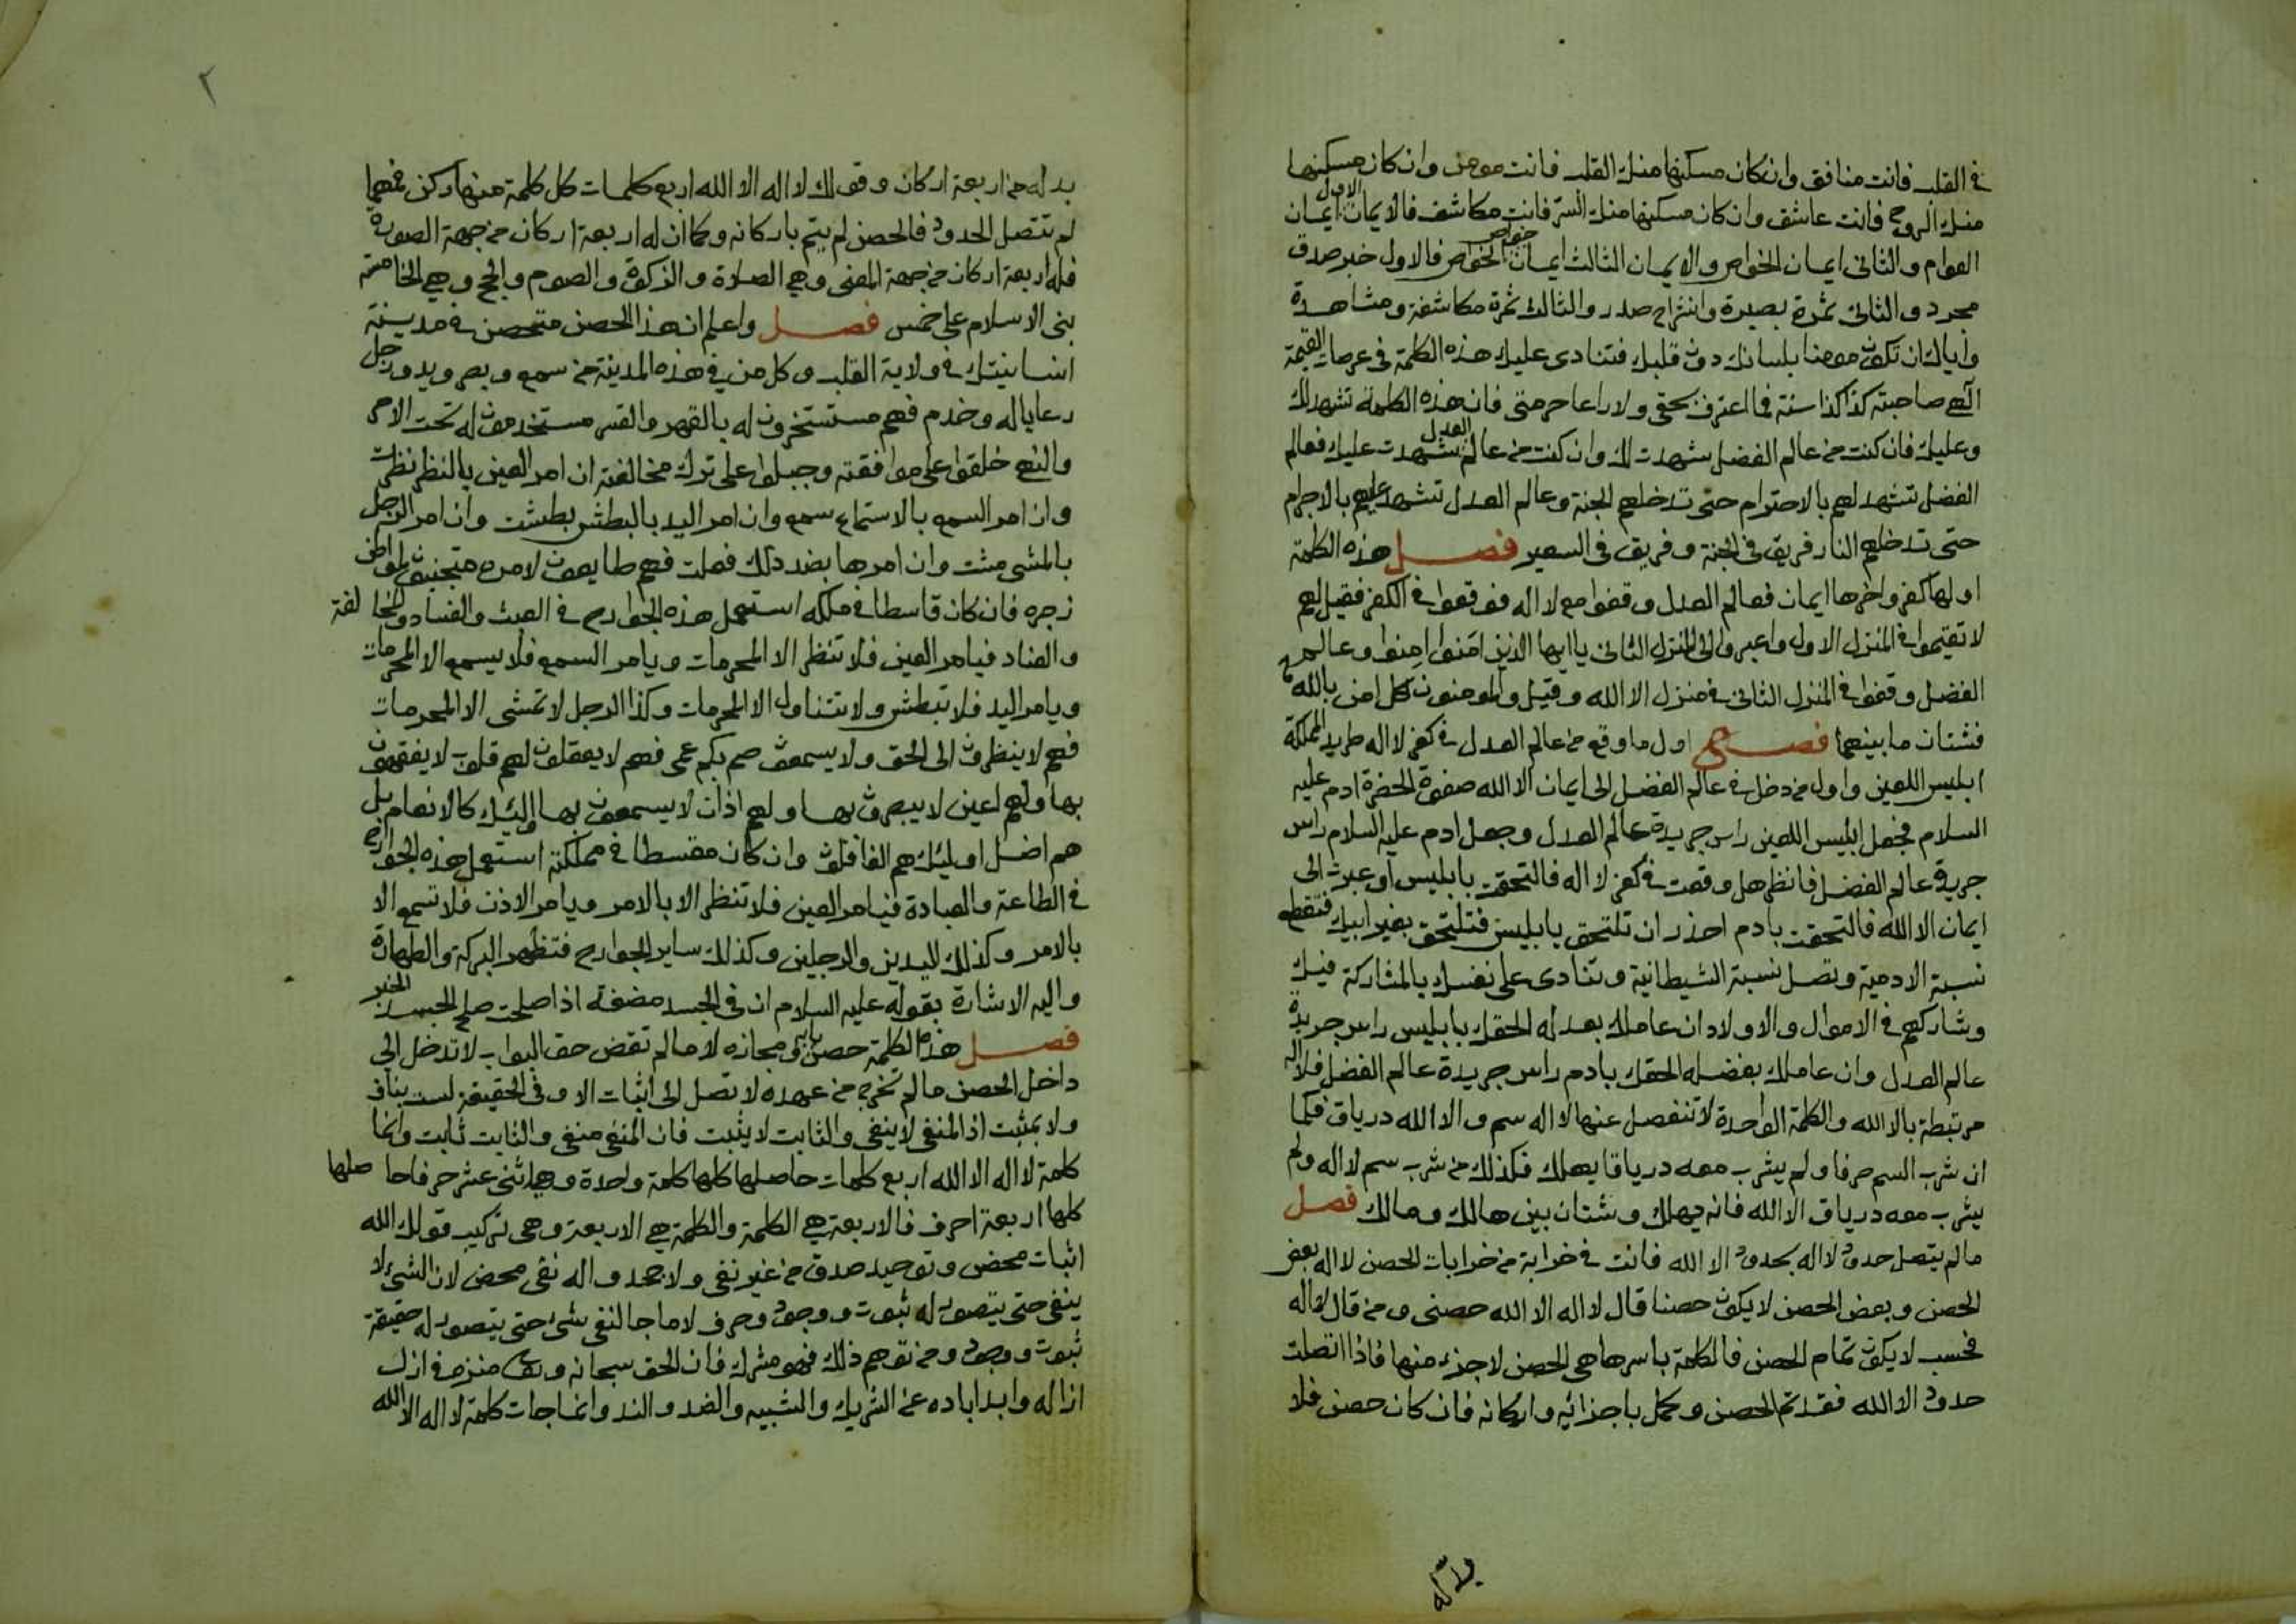 في القلب فانت منافق وان كان مسكنها منك القلب فانت مومن وان كان مسكنها
منك الروح فانت عاشق وان كان مسكنها منك السر فانت مكاشف فالايمان الاول ايمان
العوام والثانى ايمان الخواص والايمان الثالث ايمان خواص الخواص فالاول خبر صدق
مجرد والثانى ثمرة بصيرة وانشراح صدر والثالث ثمرة مكاشفة ومشاهدة
واياك ان تكون مومنا بلسانك دون قلبك فتنادى عليك هذه الكلمة في عرصات القيمة
الهى صاحبته كذا كذا سنة فما اعترف بحقى ولا راعا حرمتى فان هذه الكلمة تشهد لك
وعليك فان كنت من عالم الفضل شهدت لك وان كنت من عالم العدل شهدت عليك فعالم
الفضل تشهد لهم بالاحترام حتى تدخلهم الجنة وعالم العدل تشهد عليهم بالاجرام
حتى تدخلهم النار فريق في الجنة وفريق في السعير فصل هذه الكلمة
اولها كفر واخرها ايمان فعالم العدل وقفوا مع لا اله فوقعوا في الكفر فقيل لهم
لا تقيموا في المنزل الاول واعبروا الى المنزل الثانى يا ايها الذين امنوا امنوا وعالم
الفضل وقفوا في المنزل الثانى في منزل الا الله وقيل والمومنون كل امن بالله
فشتان ما بينهما فصل اول ما وقع من عالم العدل في كفر لا اله طريد المملكة
ابليس اللعين واول من دخل في عالم الفضل الى ايمان الا الله صفوة الحضرة ادم عليه
السلام فجعل ابليس اللعين راس جريدة عالم العدل وجعل ادم عليه السلام راس
جريدة عالم الفضل فانظر هل وقعت في كفر لا اله فالتحقت بابليس او عبرت الى
ايمان الا الله فالتحقت بادم احذر ان تلتحق بابليس فتلتحق بغير ابيك فتقطع
نسبة الادمية وتصل نسبة الشيطانية وتنادى على نفسك بالمشاركة فيك
وشاركهم في الاموال والاولاد ان عاملك بعدله الحقك بابليس راس جريدة
عالم العدل وان عاملك بفضله الحقك بادم راس جريدة عالم الفضل فلا اله
مرتبطة بالا الله والكلمة الواحدة لا تنفصل عنها لا اله سم والا الله درياق فكما
ان شرب السم صرفا ولم يشرب معه درياقا يهلك فكذلك من شرب سم لا اله ولم
يشرب معه درياق الا الله فانه يهلك وشتان بين هالك ومالك فصل
مالم يتصل حدود لا اله بحدود الا الله فانت في خرابة من خرابات الحصن لا اله بعض
الحصن وبعض الحصن لا يكون حصنا قال لا اله الا الله حصنى ومن قال لا اله
فحسب لا يكون تمام الحصن فالكلمة باسرها هى الحصن لا جزء منها فاذا اتصلت
حدود الا الله فقد تم الحصن وكمل باجزائه واركانه فان كان حصن فلا
بد له من اربعة اركان وقولك لا اله الا الله اربع كلمات كل كلمة منها ركن فمهما
لم تتصل الحدود فالحصن لم يتم باركانه وكما ان له اربعة اركان من جهة الصورة
فله اربعة اركان من جهة المعنى وهى الصلاة والزكوة والصوم والحج وهى الخامسة
بنى الاسلام على خمس فصل واعلم ان هذا الحصن متحصن في مدينة
انسانيتك في ولاية القلب وكل من في هذه المدينة من سمع وبصر ويد ورجل
رعايا له وخدم فهم مستسخرون له بالقهر والقسر مستخدمون له تحت الامر
والنهى خلقوا على موافقته وجبلوا على ترك مخالفته ان امر العين بالنظر نظرت
وان امر السمع بالاستماع سمع وان امر اليد بالبطش بطشت وان امر الرجل
بالمشى مشت وان امرها بضد ذلك فعلت فهم طايعون لامره متجنبون لمواطن
زجره فان كان قاسطا في ملكه استعمل هذه الجوارح في العبث والفساد والمخالفة
والعناد فيامر العين فلا تنظر الا المحرمات ويامر السمع فلا يسمع الا المحرمات
ويامر اليد فلا تبطش ولا تتناول الا المحرمات وكذا الرجل لا تمشى الا المحرمات
فهم لا ينظرون الى الحق ولا يسمعون صم بكم عمى فهم لا يعقلون لهم قلوب لا يفقهون
بها ولهم اعين لا يبصرون بها ولهم اذان لا يسمعون بها اوليك كالانعام بل
هم اضل اوليك هم الغافلون وان كان مقسطا في مملكته استعمل هذه الجوارح
في الطاعة والعبادة فيامر العين فلا تنظر الا بالامر ويامر الاذن فلا تسمع الا
بالامر وكذلك اليدين والرجلين وكذلك ساير الجوارح فتظهر البركة والطهارة
واليه الاشارة بقوله عليه السلام ان في الجسد مضغة اذا صلحت صلح الجسد الخبر
فصل هذه الكلمة حصن بابه ومجازه لا مالم تقض حق البواب لا تدخل الى
داخل الحصن مالم تخرج من عهده لا تصل الى اثبات الا وفي الحقيقة لست بناف
ولا بمثبت اذ المنفى لا ينفى والثابت لا يثبت فان المنفى منفى والثابت ثابت وانما
كلمة لا اله الا الله اربع كلمات حاصلها كلها كلمة واحدة وهى اثنى عشر حرفا حاصلها
كلها اربعة احرف فالاربعة هى الكلمة والكلمة هى الاربعة وهى تركيب قولك الله
اثبات محض وتوحيد صدق من غير نفى ولا جحد واله نفى محض لان الشىء لا
ينفى حتى يتصور له ثبوت ووجود وحرف لا ما جا لنفى شىء حتى يتصور له حقيقة
ثبوت ووجود ومن توهم ذلك فهو مشرك فان الحق سبحانه وتعالى منزه في ازل
ازاله وابد اباده عن الشريك والشبيه والضد والند وانما جات كلمة لا اله الا الله